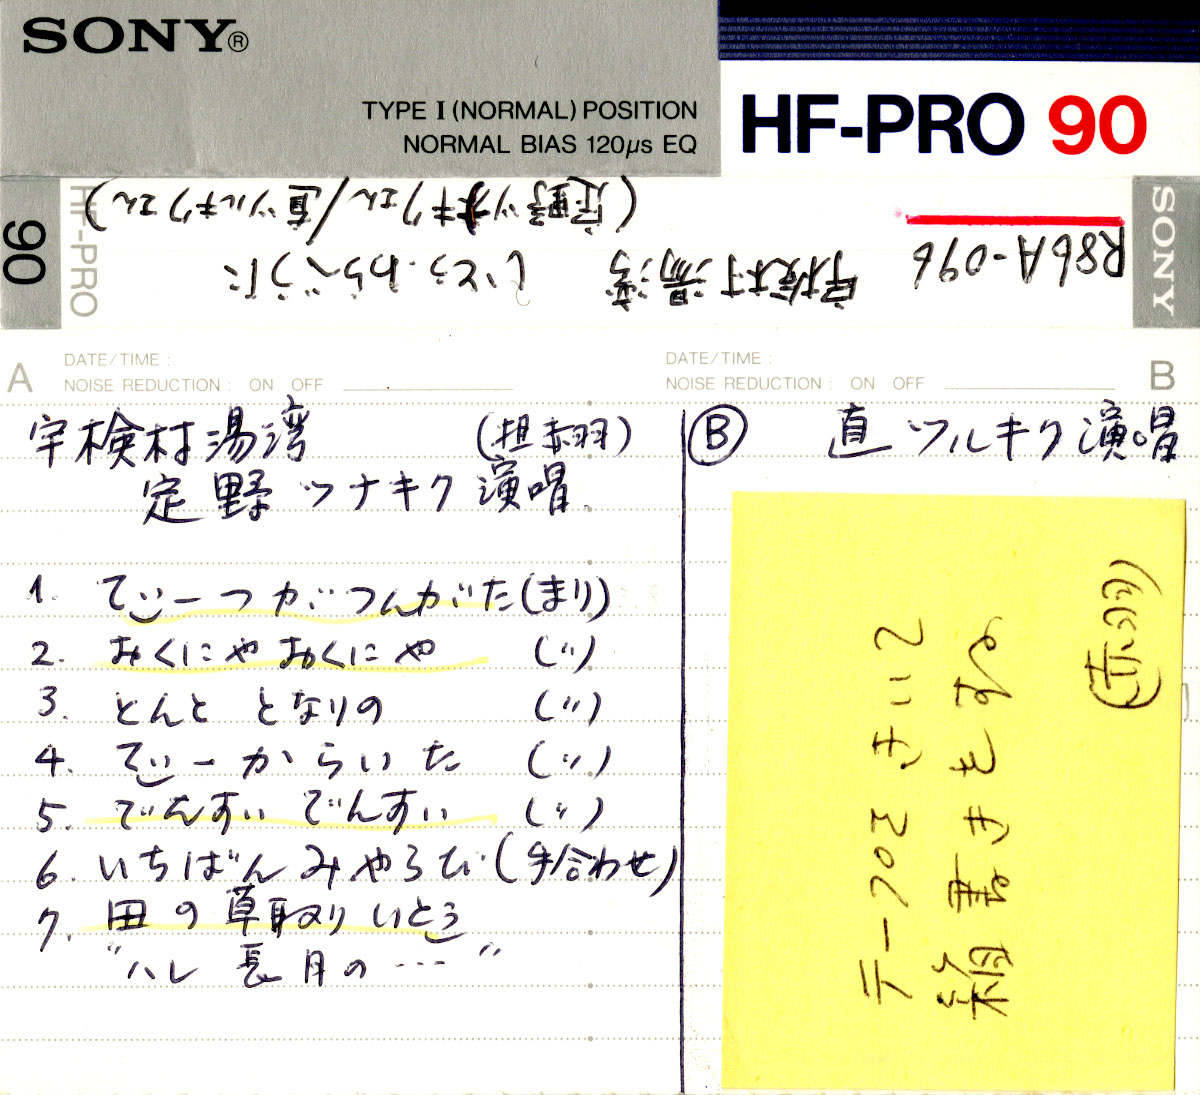 SONY®
TYPE I (NORMAL) POSITION
NORMAL BIAS 120μs EQ
HF-PRO 90
90
HF-PRO
SONY
R86A-096
宇検村湯湾 いとぅ・わらべうた
(定野ツナキクさん/直ツルキクさん)
A
DATE/TIME :
NOISE REDUCTION : ON OFF
宇検村湯湾 (担赤羽)
定野ツナキク演唱.
1. てぃーつがつんがた(まり)
2. おくにやおくにや (〃)
3. とんと となりの (〃)
4. てぃーからいた (〃)
5. でんすい でんすい (〃)
6. いちばんみやらび(手合わせ)
7. 田の草取りいとぅ
"ハレ 長月の…"
B
DATE/TIME :
NOISE REDUCTION : ON OFF
Ⓑ 直ツルキク演唱
テープをきいて
(赤羽)